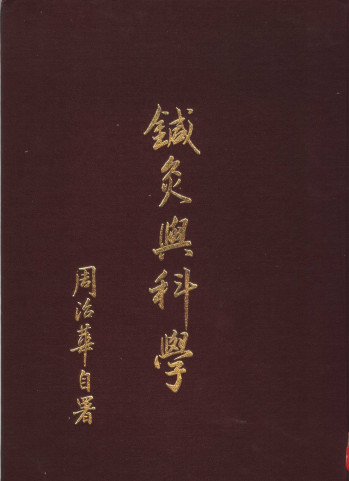 鍼灸與科學
周治華自署